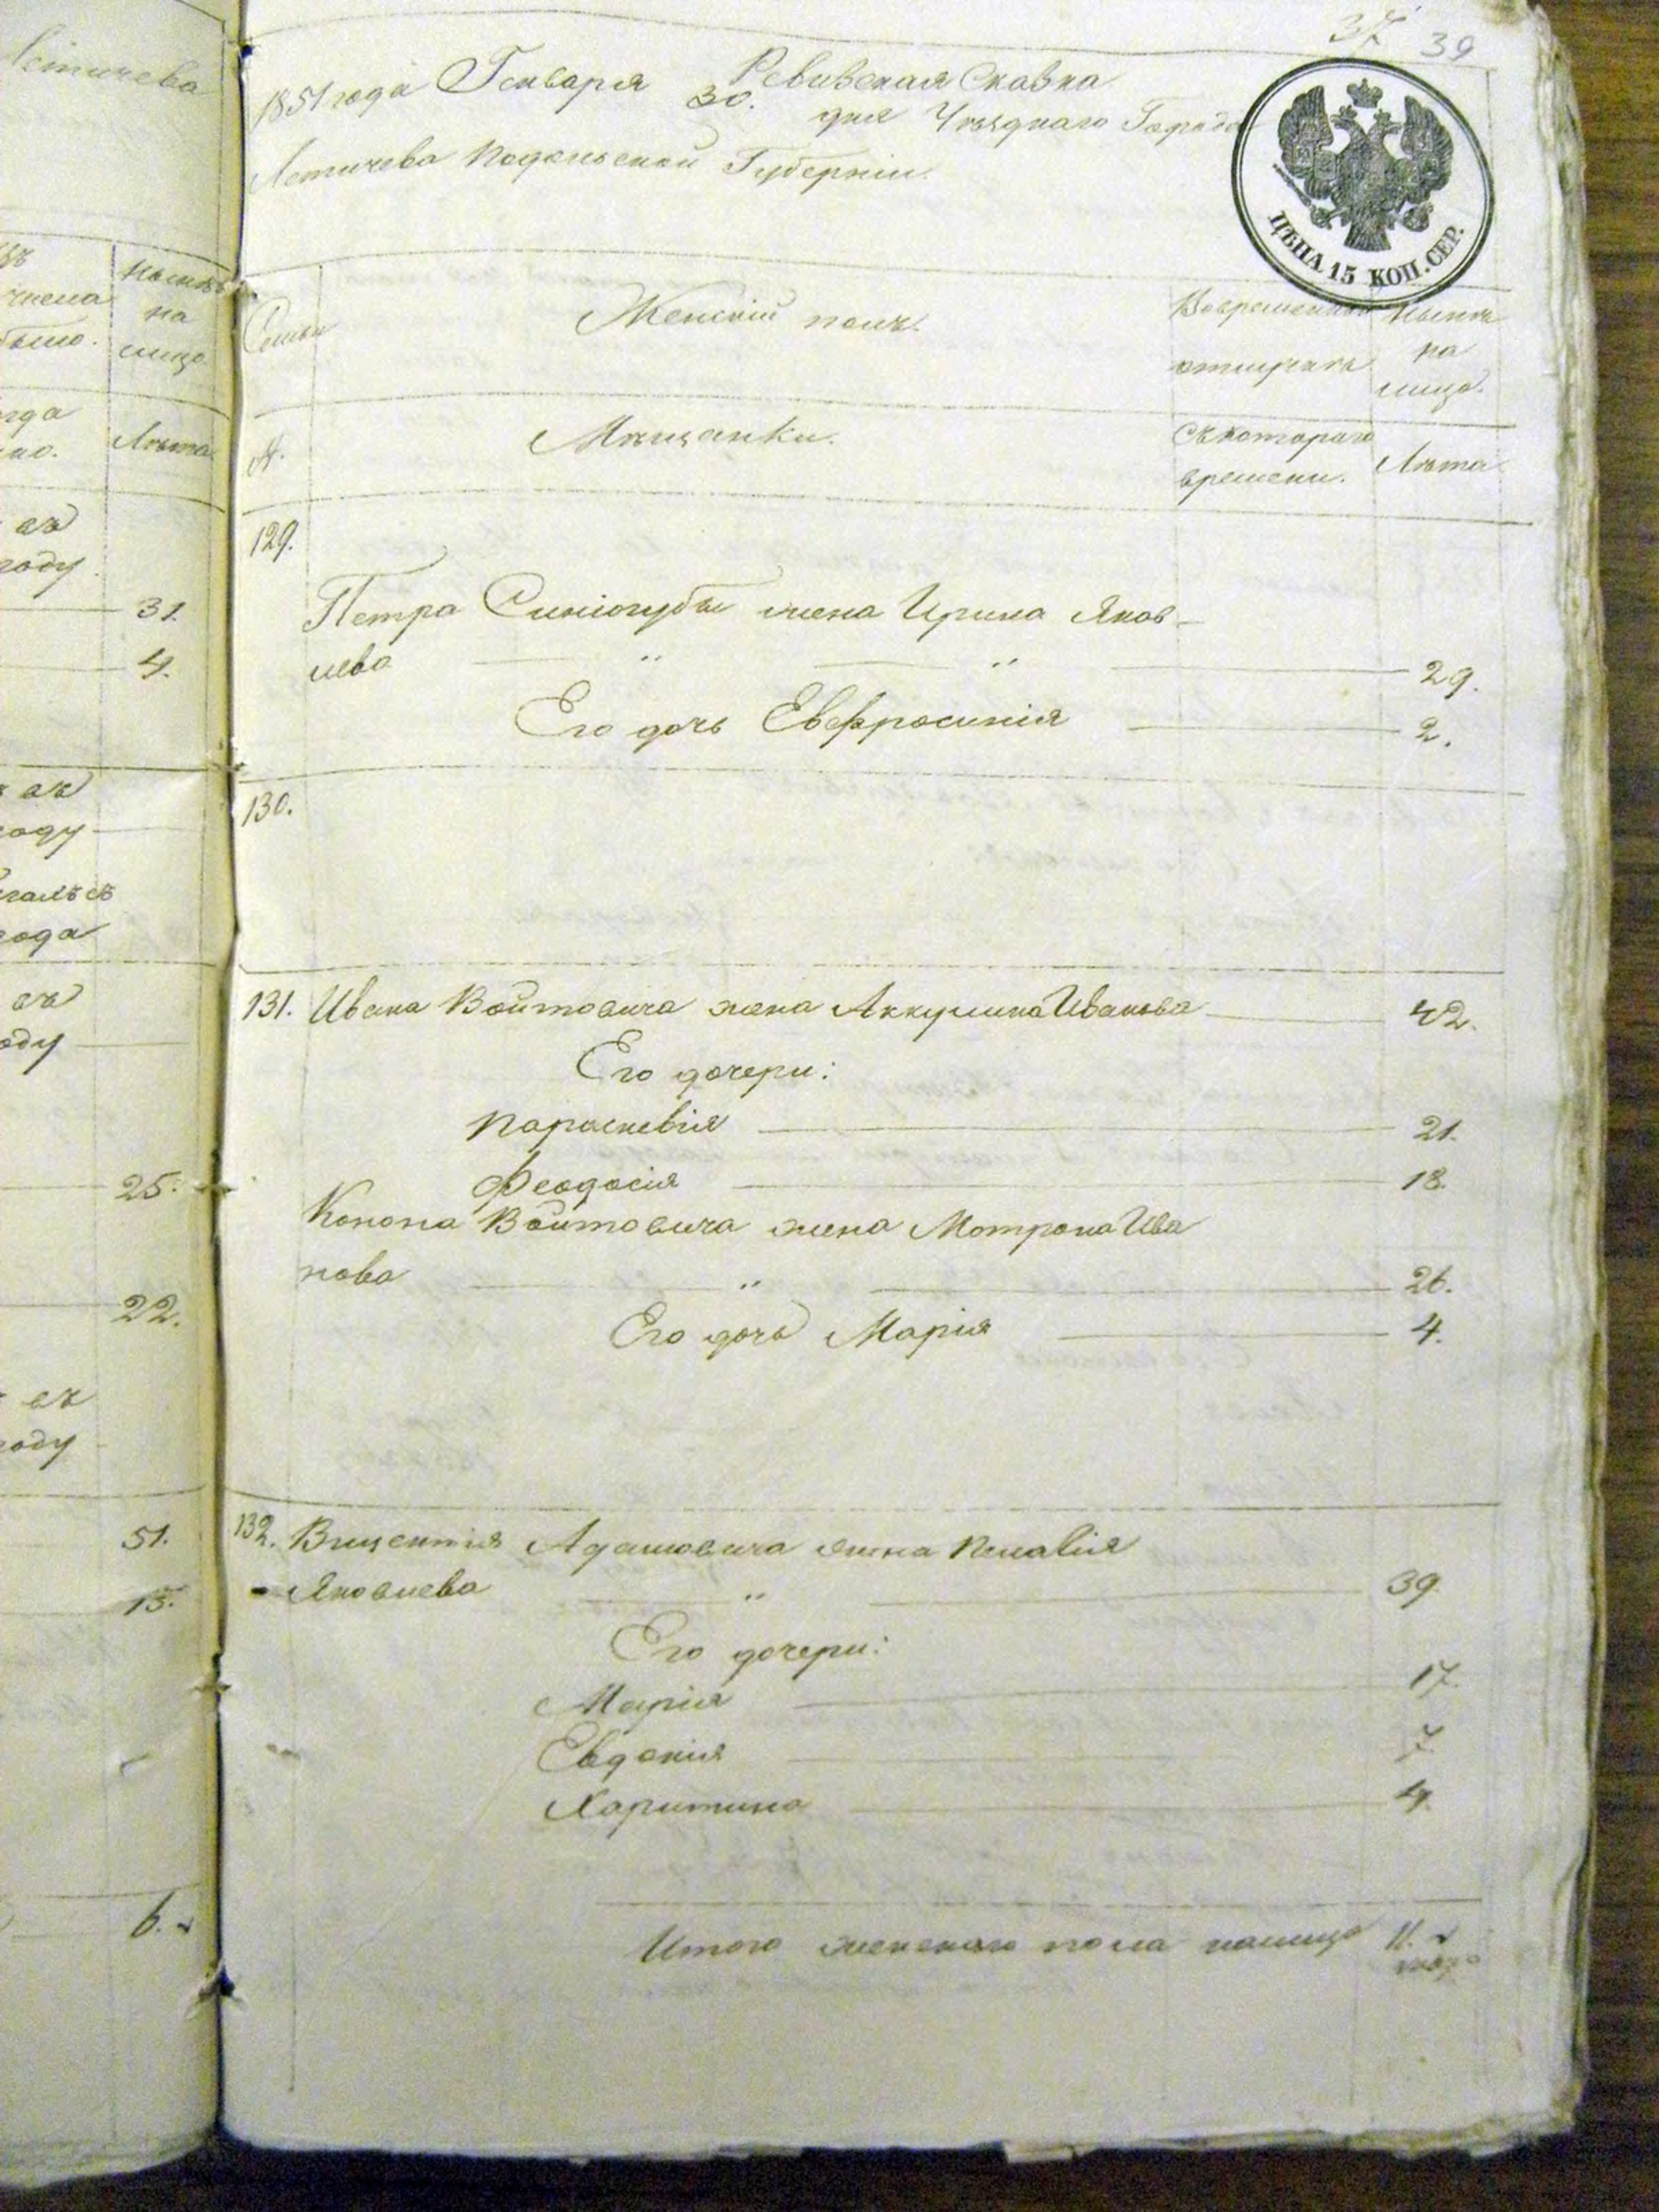 37 39
Ревизская Сказка
1851 года Генваря 30. дня Уѣзднаго Города
Летичева Подольской Губерніи.
ЦѢНА 15 КОП. СЕР.
Семьи
Женскій полъ.
Во временной
отлучкѣ
Нынѣ
на
лицо.
№.
Мѣщанки.
Съ котораго
времени.
Лѣта
129.
Петра Синіогубы жена Ирина Яков-
лева " " 29.
Его дочь Евфросинія 2.
130.
131. Ивана Войтовича жена Аккулина Иванова 42.
Его дочери:
Параскевія 21.
Феодосія 18.
Конона Войтовича жена Мотрона Ива
нова " 26.
Его дочь Марія 4.
132. Вицентія Адамовича жена Пелагія
Яковлева " 39
Его дочери:
Марія 17.
Евдокія 7.
Харитина 4.
Итого женскаго пола налицо 11.
Летичева
нынѣ
на
лицо
было.
Лѣта
въ
году
31.
4.
въ
году
года
въ
году
25.
22.
въ
году
51.
15.
6.